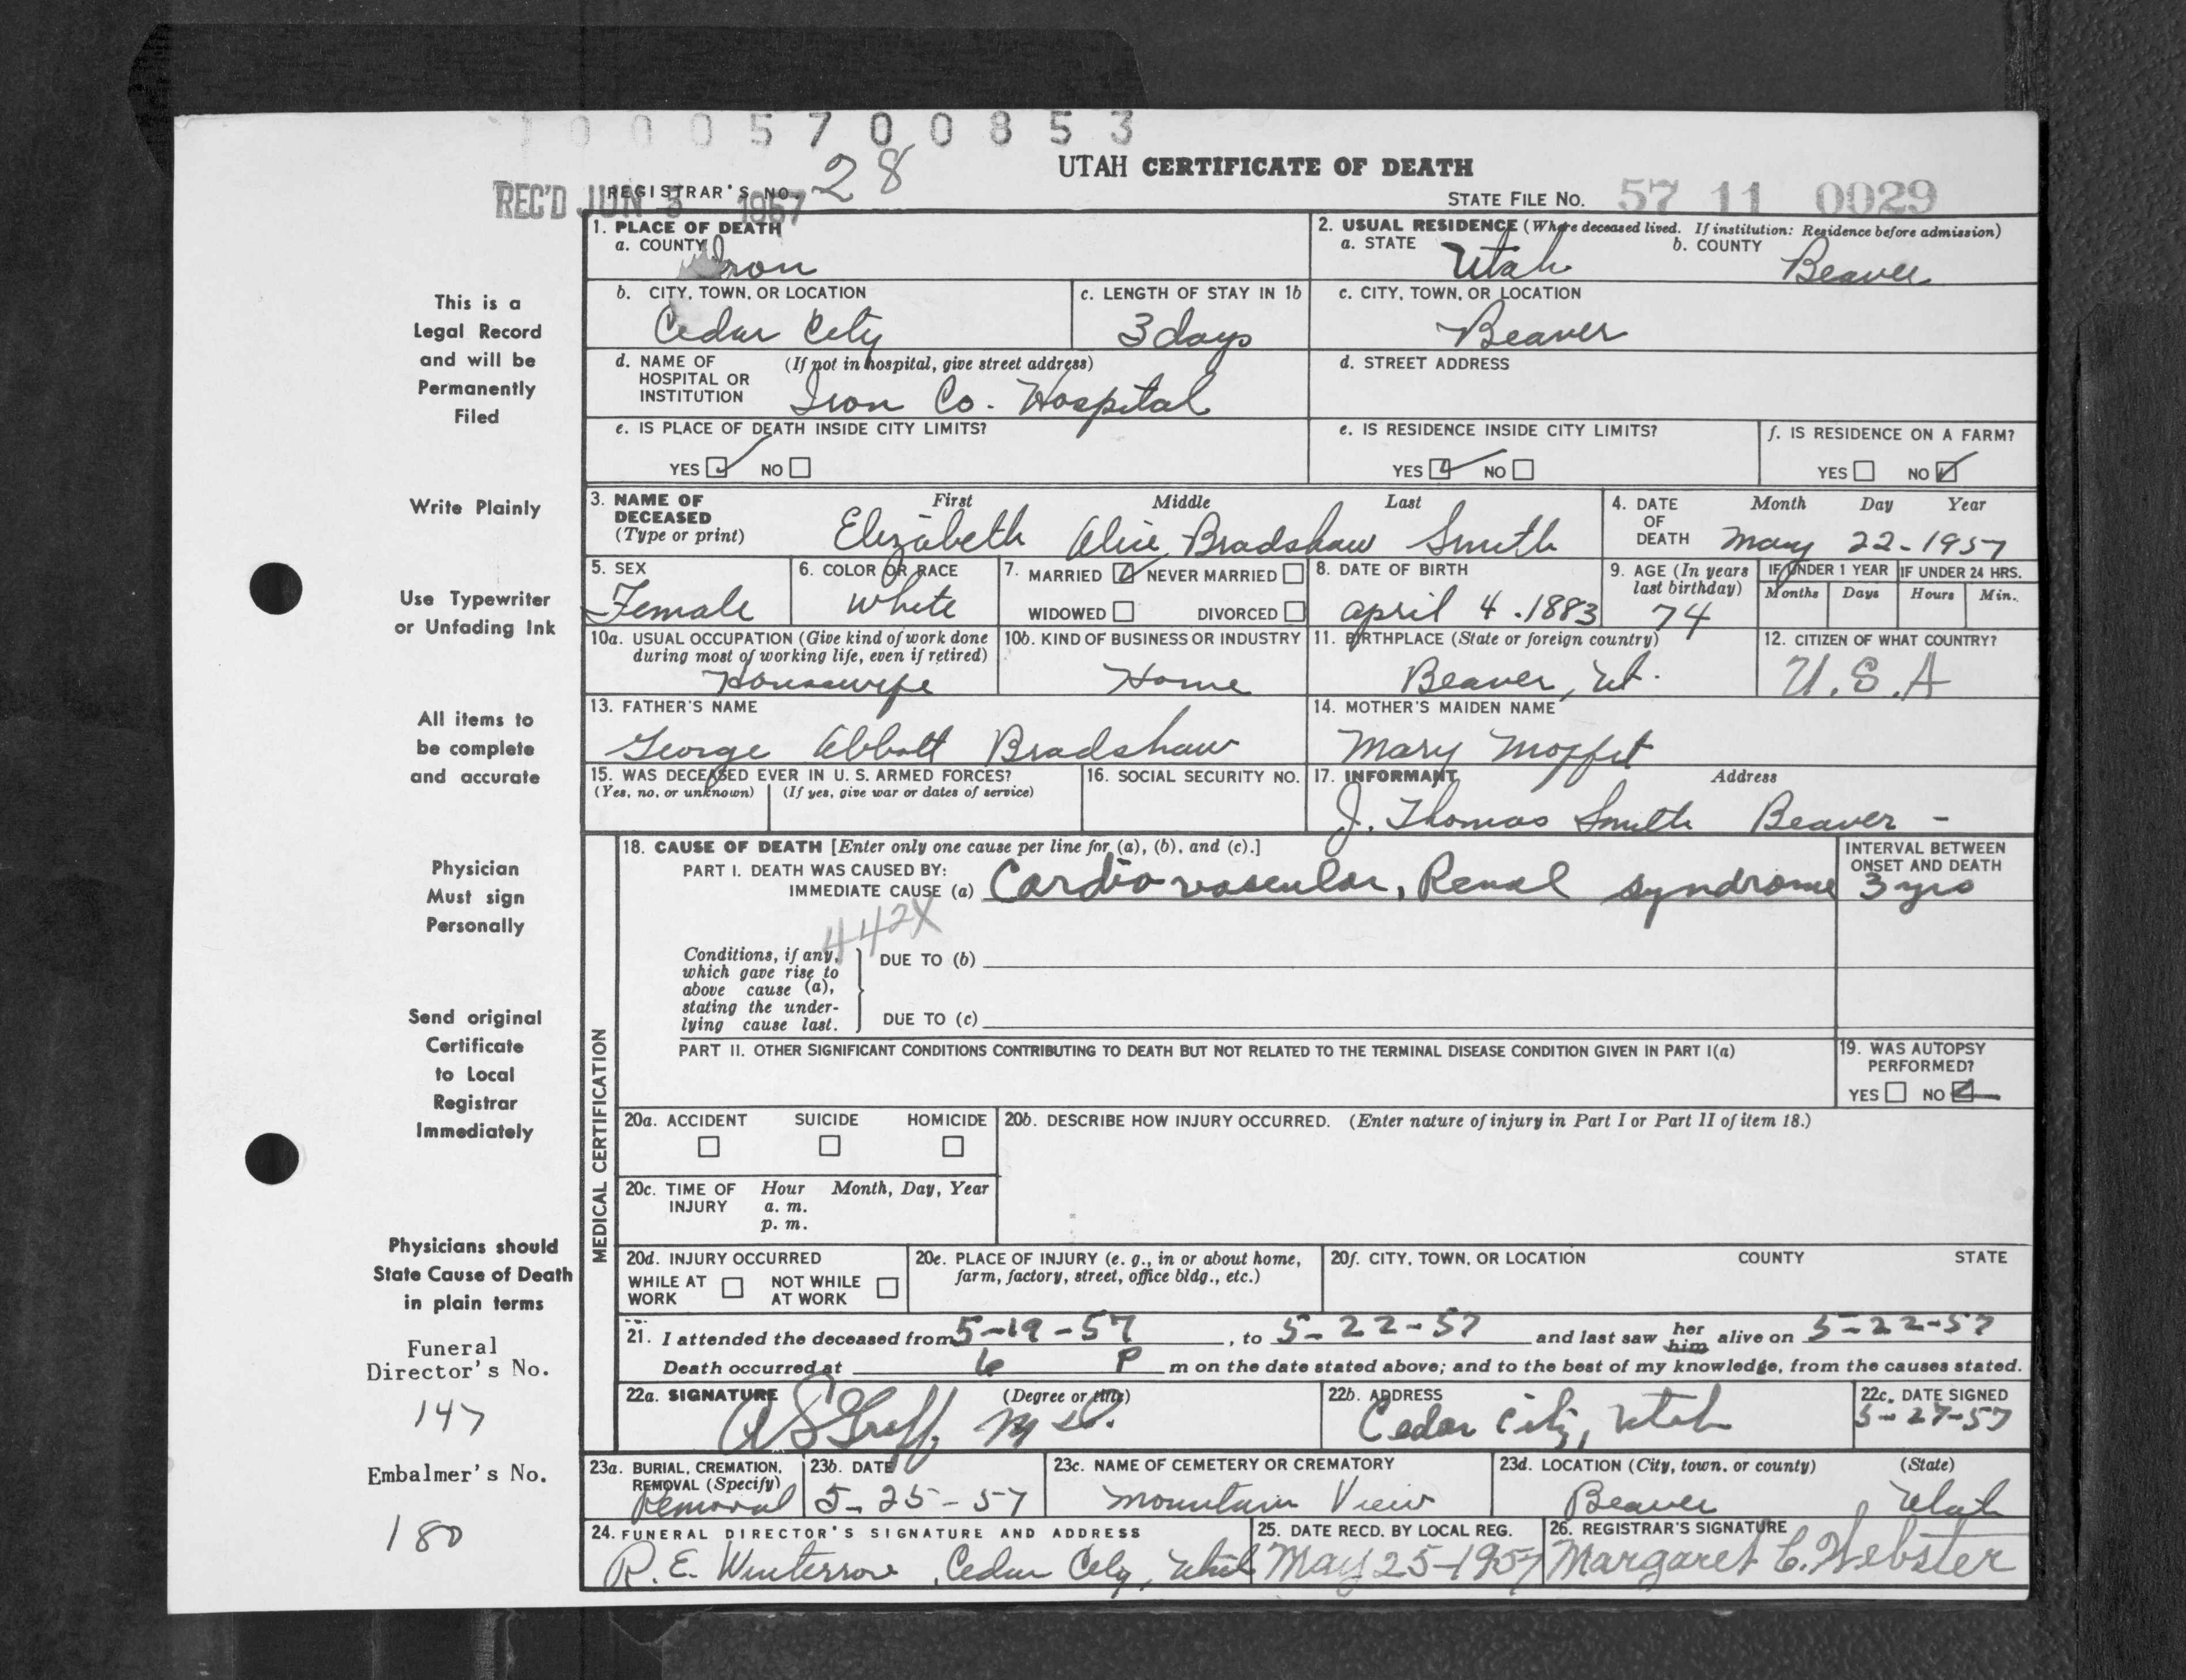 10005700853
UTAH CERTIFICATE OF DEATH
REGISTRAR'S NO. 28
REC'D JUN 3 1957
STATE FILE NO. 57 11 0029
1. PLACE OF DEATH
a. COUNTY Iron
2. USUAL RESIDENCE (Where deceased lived. If institution: Residence before admission)
a. STATE Utah b. COUNTY Beaver
b. CITY, TOWN, OR LOCATION Cedar City
c. LENGTH OF STAY IN 1b 3 days
c. CITY, TOWN, OR LOCATION Beaver
d. NAME OF HOSPITAL OR INSTITUTION (If not in hospital, give street address) Iron Co. Hospital
d. STREET ADDRESS
e. IS PLACE OF DEATH INSIDE CITY LIMITS?
YES ☑ NO ☐
e. IS RESIDENCE INSIDE CITY LIMITS?
YES ☑ NO ☐
f. IS RESIDENCE ON A FARM?
YES ☐ NO ☑
3. NAME OF DECEASED (Type or print)
First Middle Last
Elizabeth Alice Bradshaw Smith
4. DATE OF DEATH Month Day Year
May 22-1957
5. SEX Female
6. COLOR OR RACE White
7. MARRIED ☑ NEVER MARRIED ☐
WIDOWED ☐ DIVORCED ☐
8. DATE OF BIRTH April 4. 1883
9. AGE (In years last birthday) 74
IF UNDER 1 YEAR Months Days
IF UNDER 24 HRS. Hours Min.
10a. USUAL OCCUPATION (Give kind of work done during most of working life, even if retired) Housewife
10b. KIND OF BUSINESS OR INDUSTRY Home
11. BIRTHPLACE (State or foreign country) Beaver, Ut.
12. CITIZEN OF WHAT COUNTRY? U.S.A
13. FATHER'S NAME George Abbott Bradshaw
14. MOTHER'S MAIDEN NAME Mary Moffit
15. WAS DECEASED EVER IN U. S. ARMED FORCES?
(Yes, no, or unknown) (If yes, give war or dates of service)
16. SOCIAL SECURITY NO.
17. INFORMANT Address
J. Thomas Smith Beaver -
MEDICAL CERTIFICATION
18. CAUSE OF DEATH [Enter only one cause per line for (a), (b), and (c).]
PART I. DEATH WAS CAUSED BY:
IMMEDIATE CAUSE (a) Cardio-vascular, Renal syndrome
INTERVAL BETWEEN ONSET AND DEATH
3 yrs
442X
Conditions, if any, which gave rise to above cause (a), stating the underlying cause last.
DUE TO (b)
DUE TO (c)
PART II. OTHER SIGNIFICANT CONDITIONS CONTRIBUTING TO DEATH BUT NOT RELATED TO THE TERMINAL DISEASE CONDITION GIVEN IN PART I(a)
19. WAS AUTOPSY PERFORMED?
YES ☐ NO ☑
20a. ACCIDENT SUICIDE HOMICIDE
☐ ☐ ☐
20b. DESCRIBE HOW INJURY OCCURRED. (Enter nature of injury in Part I or Part II of item 18.)
20c. TIME OF INJURY Hour Month, Day, Year
a. m.
p. m.
20d. INJURY OCCURRED
WHILE AT WORK ☐ NOT WHILE AT WORK ☐
20e. PLACE OF INJURY (e. g., in or about home, farm, factory, street, office bldg., etc.)
20f. CITY, TOWN, OR LOCATION COUNTY STATE
21. I attended the deceased from 5-19-57, to 5-22-57 and last saw her him alive on 5-22-57
Death occurred at 6 P m on the date stated above; and to the best of my knowledge, from the causes stated.
22a. SIGNATURE (Degree or title)
M D.
22b. ADDRESS Cedar City, Utah
22c. DATE SIGNED 5-27-57
23a. BURIAL, CREMATION, REMOVAL (Specify) Removal
23b. DATE 5-25-57
23c. NAME OF CEMETERY OR CREMATORY Mountain View
23d. LOCATION (City, town, or county) (State)
Beaver Utah
24. FUNERAL DIRECTOR'S SIGNATURE AND ADDRESS
R. E. Winterrose, Cedar City, Utah
25. DATE RECD. BY LOCAL REG. May 25-1957
26. REGISTRAR'S SIGNATURE Margaret C. Webster
This is a
Legal Record
and will be
Permanently
Filed
Write Plainly
Use Typewriter
or Unfading Ink
All items to
be complete
and accurate
Physician
Must sign
Personally
Send original
Certificate
to Local
Registrar
Immediately
Physicians should
State Cause of Death
in plain terms
Funeral
Director's No.
147
Embalmer's No.
180